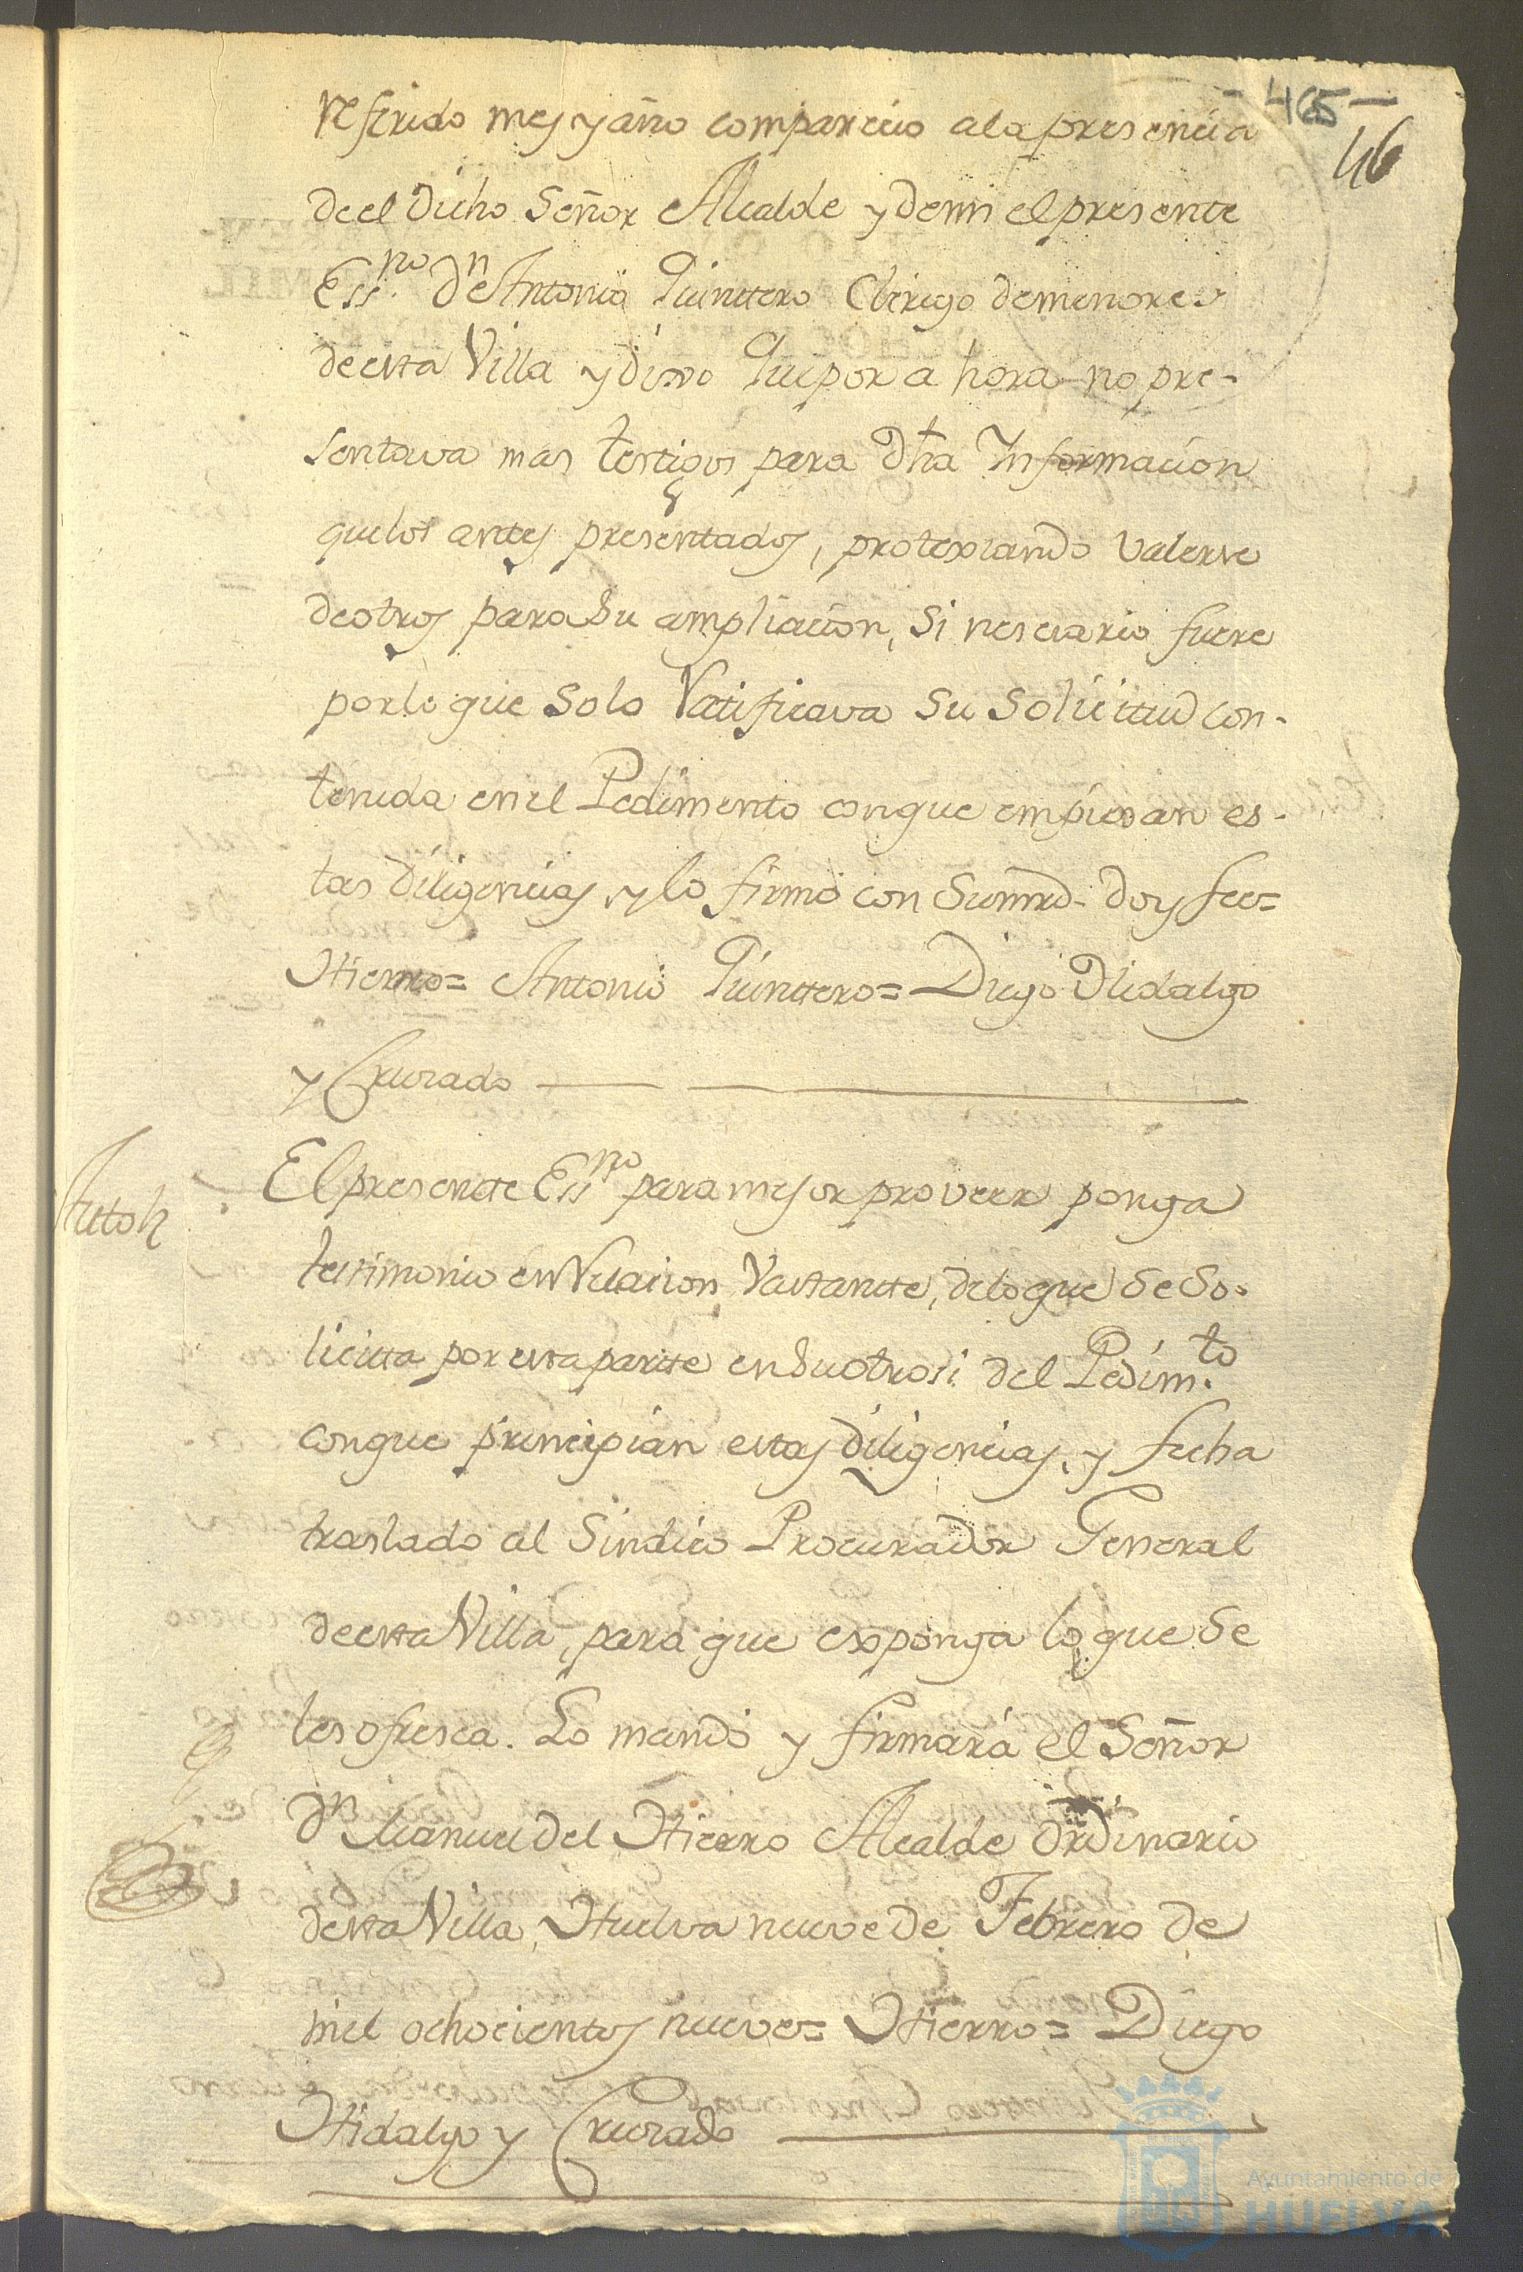 - 465 -
46
referido mes y año comparecio a la presencia
de el Dicho Señor Alcalde y de mi el presente
Essno. Dn Antonio Quintero Clerigo de menores
de esta Villa y dixo Que por a hora no pre-
sentava mas testigos para dha Informacion
que los antes presentados, protextando valerse
de otros para su ampliacion, si nesesario fuere
por lo que solo Ratificava su solicitud con-
tenida en el Pedimento con que empiesan es-
tas diligencias, y lo firmó con Su mrd. doy fee=
Hierro= Antonio Quintero= Diego Hidalgo
y Crusado
Auto
El presente Essno para mejor proveer ponga
testimonio en Relacion, Vastante, de lo que se so-
licita por esta parte en su otrosi del Pedimto.
con que principian estas diligencias, y fecha
traslado al Sindico Procurador General
de esta Villa, para que exponga lo que se
les ofresca. Lo mandó y firmará el Señor
Dn Manuel del Hierro Alcalde Ordinario
desta Villa, Huelva nueve de Febrero de
mil ochocientos nueve= Hierro= Diego
Hidalgo y Crusado
Ayuntamiento de
HUELVA